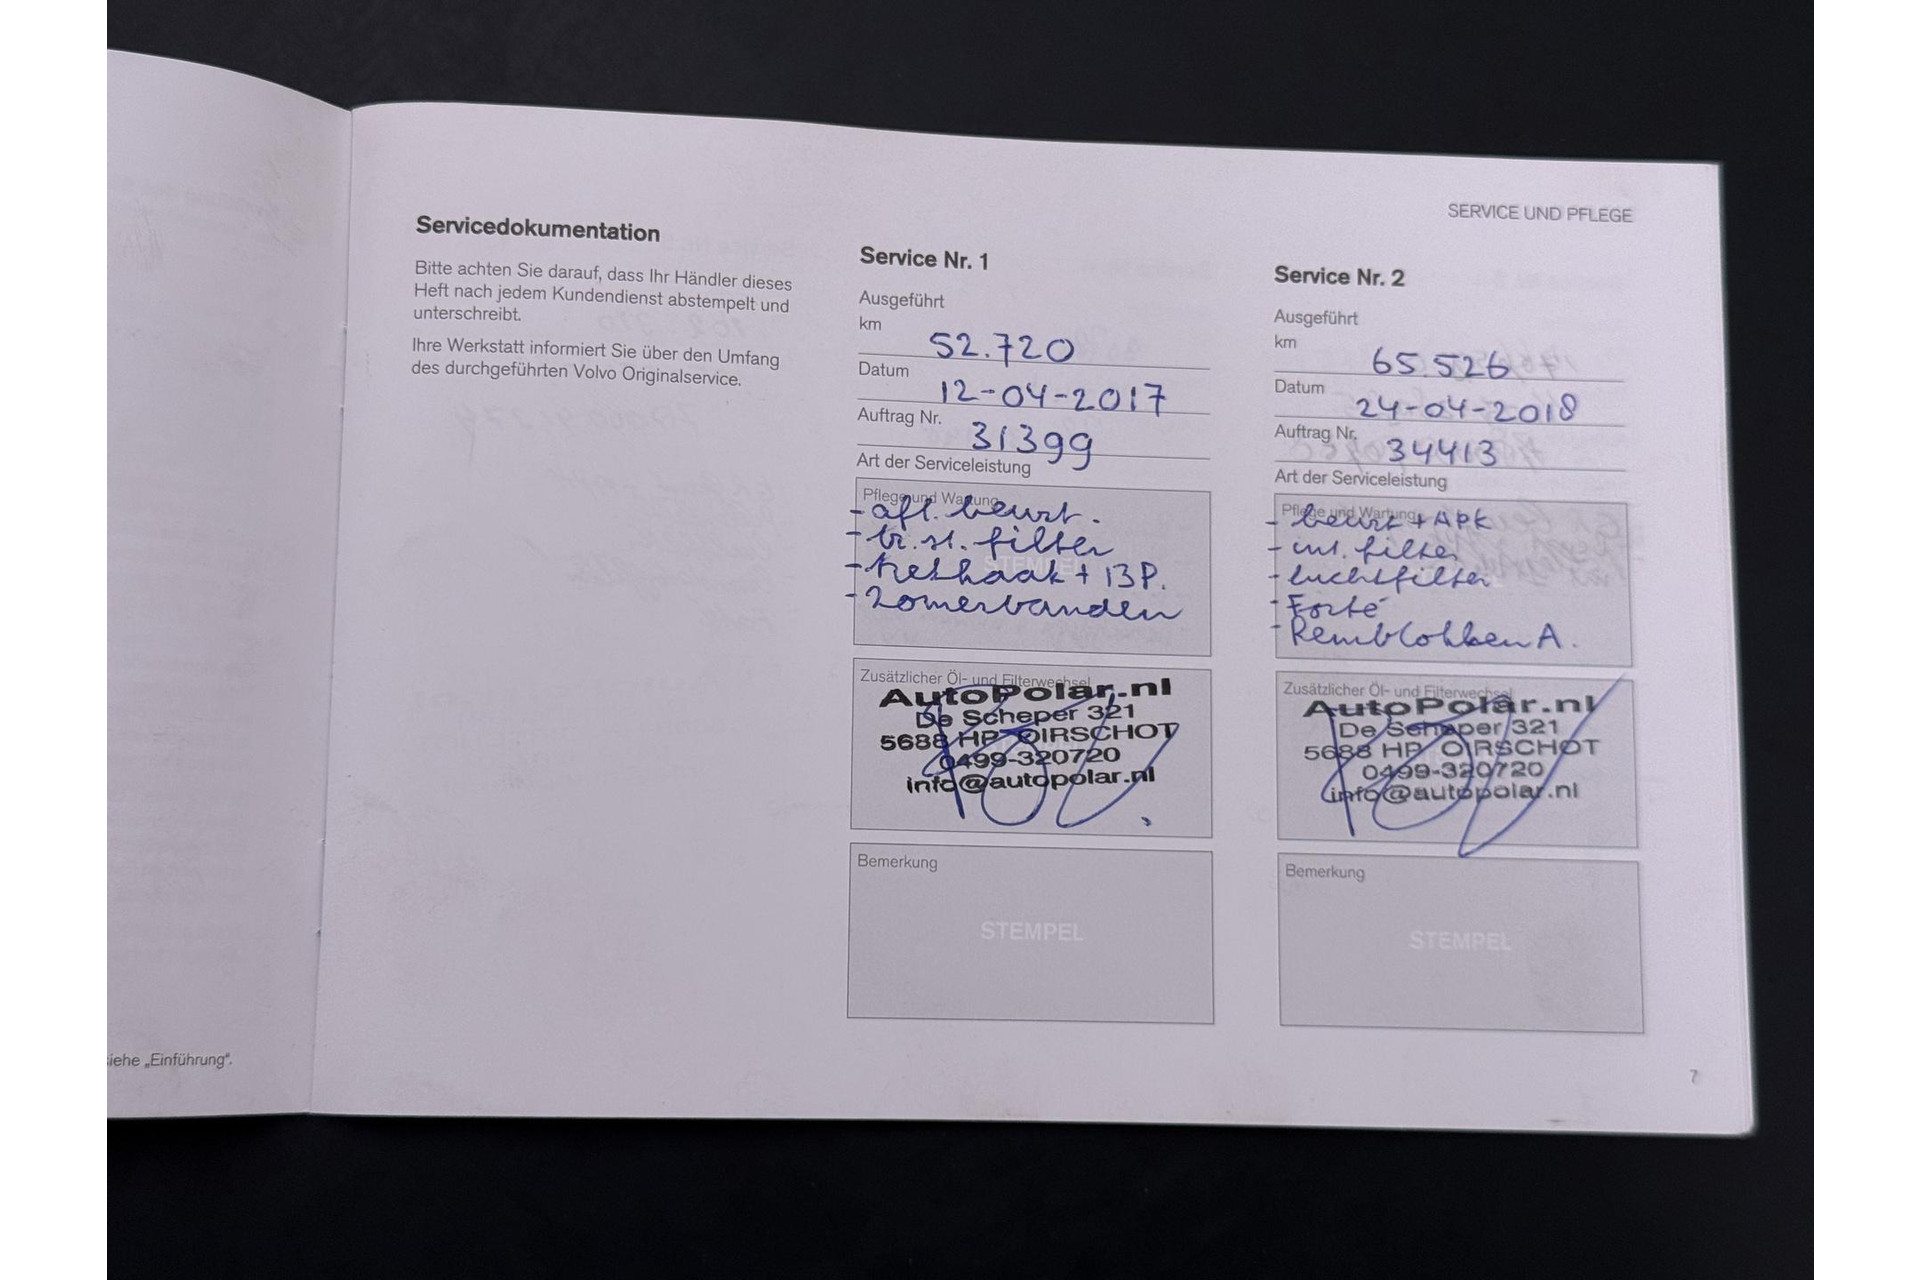 SERVICE UND PFLEGE
Servicedokumentation
Bitte achten Sie darauf, dass Ihr Händler dieses
Heft nach jedem Kundendienst abstempelt und
unterschreibt.
Ihre Werkstatt informiert Sie über den Umfang
des durchgeführten Volvo Originalservice.
Service Nr. 1
Ausgeführt
km 52.720
Datum 12-04-2017
Auftrag Nr. 31399
Art der Serviceleistung
Pflege und Wartung
- afl. beurt.
- br. st. filter
- trekhaak + 13P.
- Zomerbanden
Zusätzlicher Öl- und Filterwechsel
AutoPolar.nl
De Scheper 321
5688 HP OIRSCHOT
0499-320720
info@autopolar.nl
Bemerkung
STEMPEL
Service Nr. 2
Ausgeführt
km 65.526
Datum 24-04-2018
Auftrag Nr. 34413
Art der Serviceleistung
Pflege und Wartung
- beurt + APK
- int. filter
- luchtfilter
- Forté
- Remblokken A.
Zusätzlicher Öl- und Filterwechsel
AutoPolar.nl
De Scheper 321
5688 HP OIRSCHOT
0499-320720
info@autopolar.nl
Bemerkung
STEMPEL
siehe „Einführung“.
7